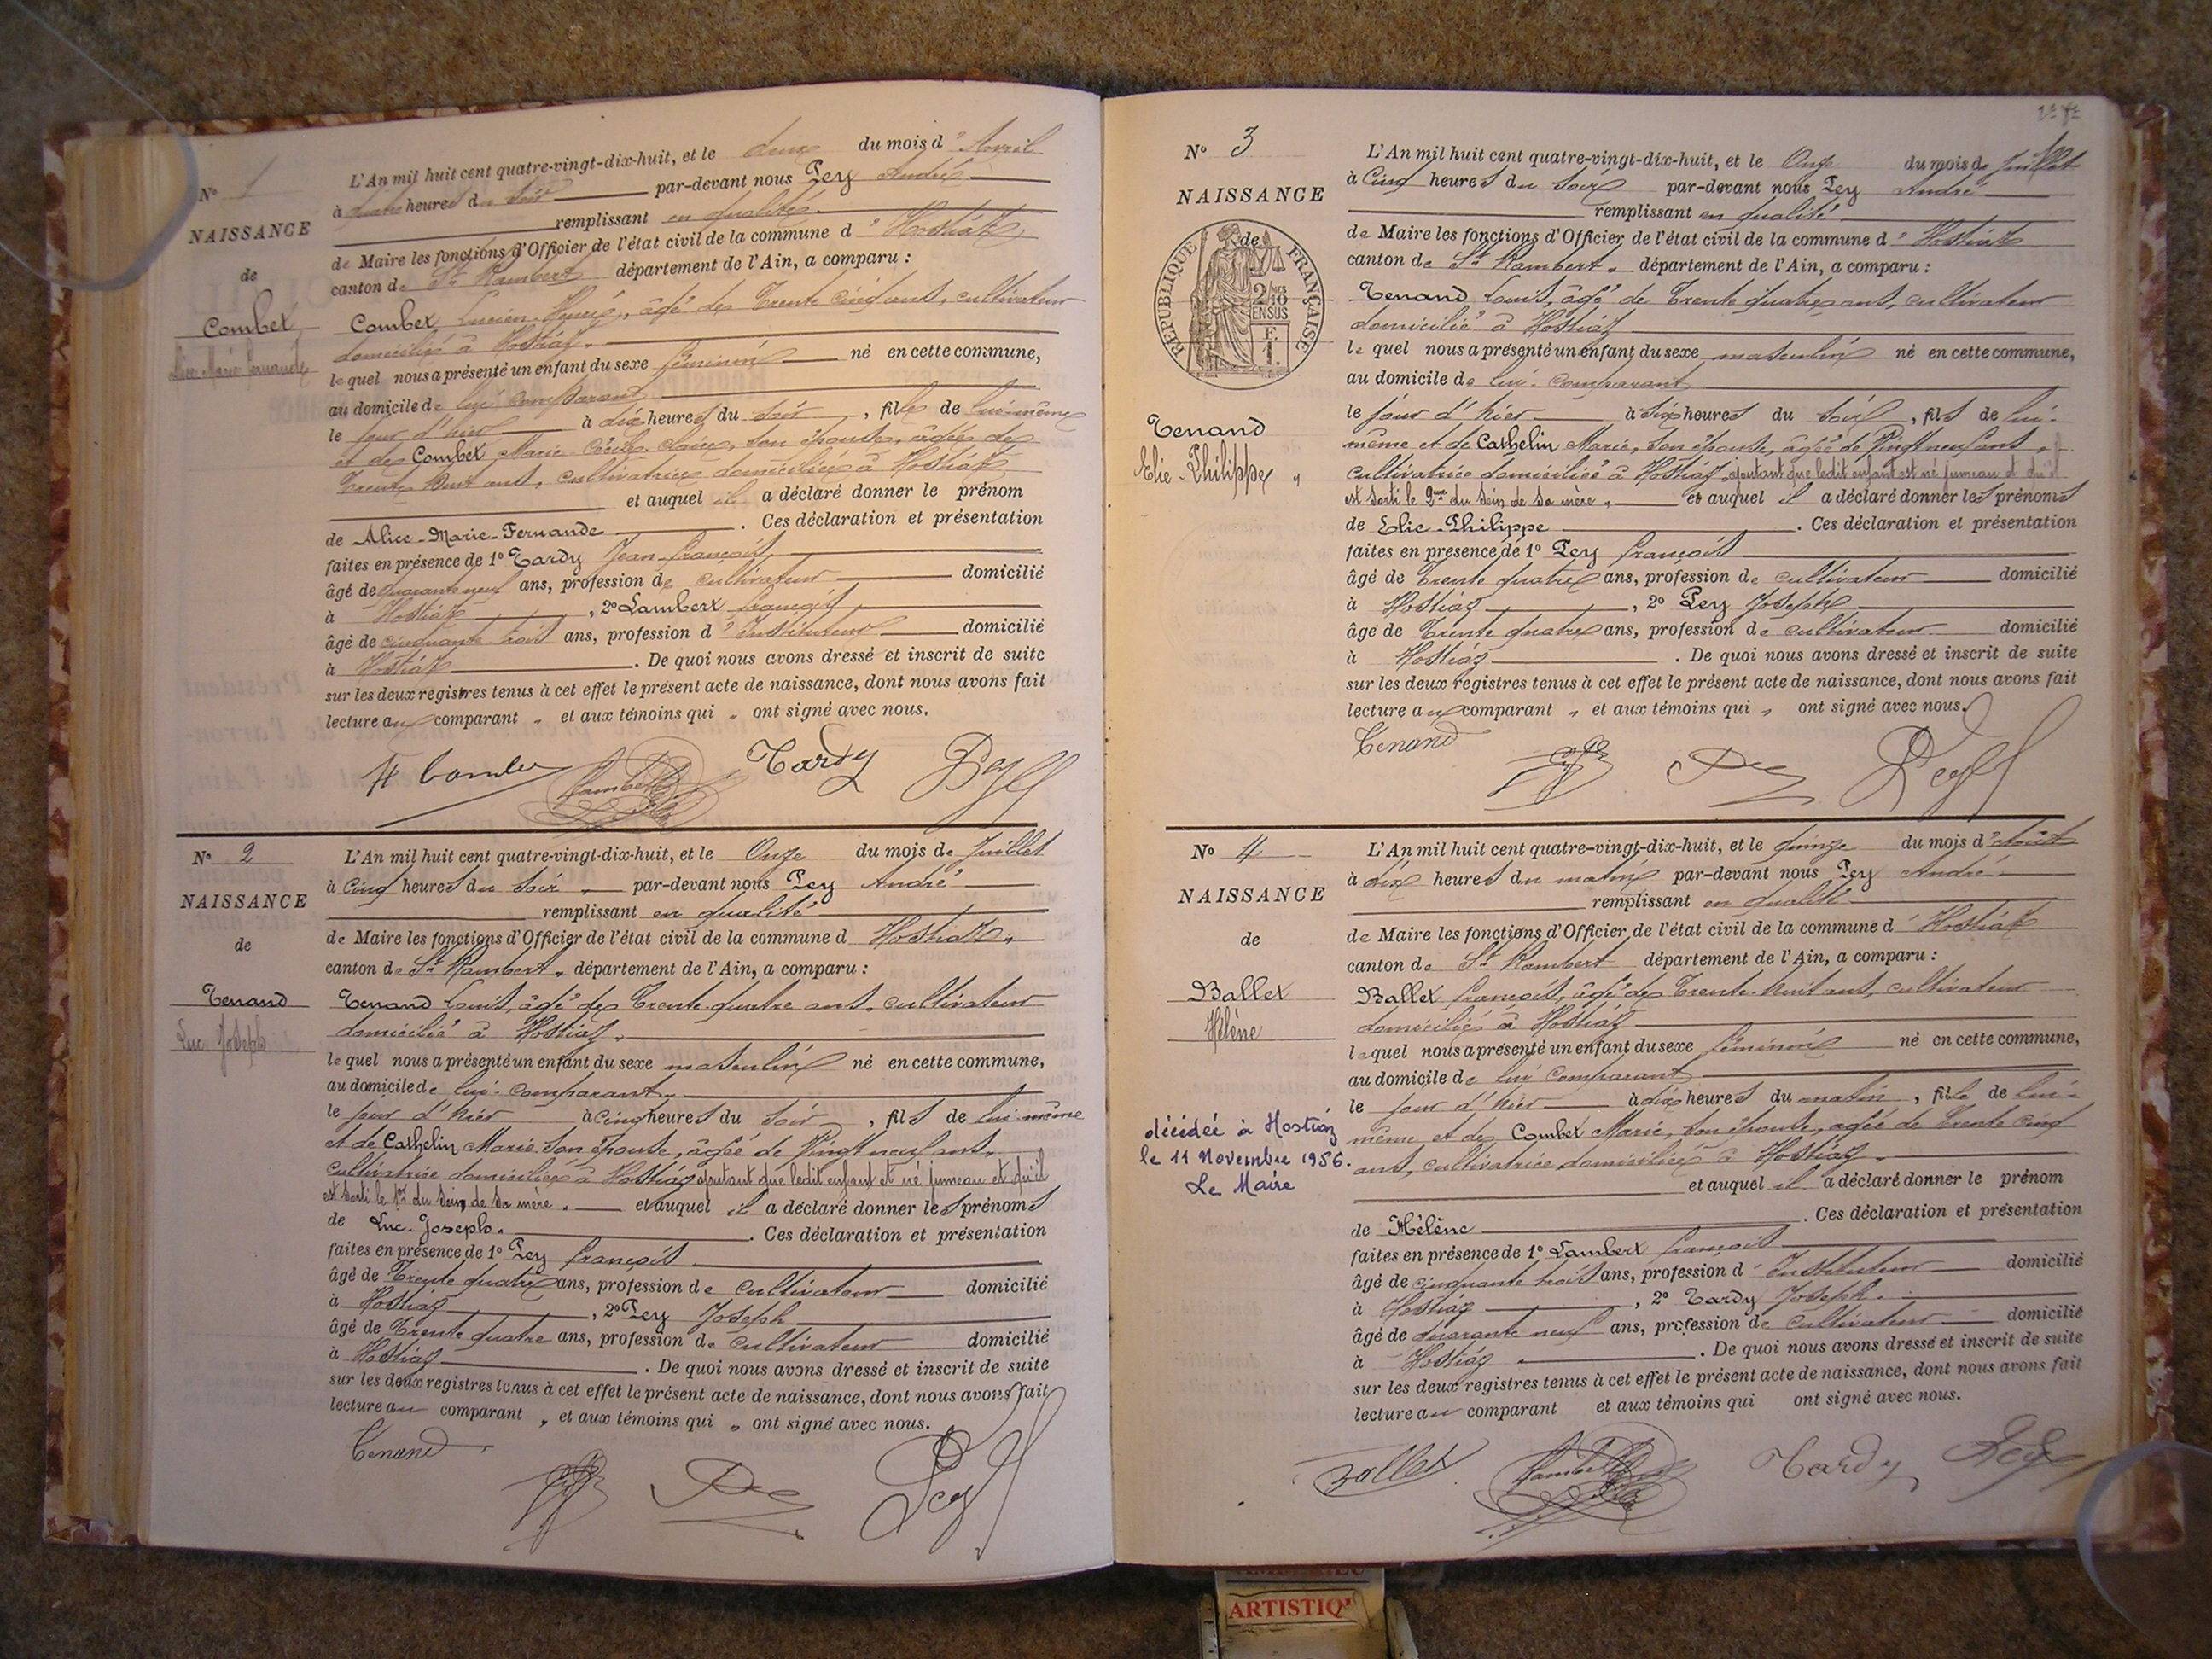 N° 1
NAISSANCE
de
Combet
Alice Marie Fernande
L'An mil huit cent quatre-vingt-dix-huit, et le deux du mois d'Avril
à quatre heures du soir par-devant nous Pey André
remplissant en qualité
de Maire les fonctions d'Officier de l'état civil de la commune d'Hostiaz
canton de St Rambert département de l'Ain, a comparu :
Combet Lucien, âgé de Trente cinq ans, cultivateur
domicilié à Hostiaz
le quel nous a présenté un enfant du sexe féminin né en cette commune,
au domicile de lui comparant
le jour d'hier à dix heures du soir, fille de lui-même
et de Combet Marie Cécile Claire, son épouse, âgée de
Trente huit ans, cultivatrice domiciliée à Hostiaz
et auquel il a déclaré donner le prénom
de Alice-Marie-Fernande. Ces déclaration et présentation
faites en présence de 1° Tardy Jean-François
âgé de quarante neuf ans, profession de cultivateur domicilié
à Hostiaz, 2° Lambert François
âgé de cinquante trois ans, profession d'Instituteur domicilié
à Hostiaz. De quoi nous avons dressé et inscrit de suite
sur les deux registres tenus à cet effet le présent acte de naissance, dont nous avons fait
lecture au comparant et aux témoins qui ont signé avec nous.
Lambert Tardy Pey
N° 2
NAISSANCE
de
Tenand
Luc Joseph
L'An mil huit cent quatre-vingt-dix-huit, et le Onze du mois de Juillet
à Cinq heures du soir par-devant nous Pey André
remplissant en qualité
de Maire les fonctions d'Officier de l'état civil de la commune d Hostiaz
canton de St Rambert département de l'Ain, a comparu :
Tenand Louis, âgé de Trente quatre ans, cultivateur
domicilié à Hostiaz
le quel nous a présenté un enfant du sexe masculin né en cette commune,
au domicile de lui comparant
le jour d'hier à cinq heures du soir, fils de lui-même
et de Cathelin Marie son épouse, âgée de Vingt neuf ans
cultivatrice domiciliée à Hostiaz ajoutant que ledit enfant est né jumeau et qu'il
est sorti le 1er du sein de sa mère. et auquel il a déclaré donner les prénoms
de Luc-Joseph. Ces déclaration et présentation
faites en présence de 1° Pey François
âgé de Trente quatre ans, profession de cultivateur domicilié
à Hostiaz, 2° Pey Joseph
âgé de Trente quatre ans, profession de cultivateur domicilié
à Hostiaz. De quoi nous avons dressé et inscrit de suite
sur les deux registres tenus à cet effet le présent acte de naissance, dont nous avons fait
lecture au comparant et aux témoins qui ont signé avec nous.
Tenand Pey
N° 3
NAISSANCE
de
RÉPUBLIQUE FRANÇAISE
2/10 EN SUS
Tenand
Elie-Philippe
L'An mil huit cent quatre-vingt-dix-huit, et le Onze du mois de Juillet
à Cinq heures du soir par-devant nous Pey André
remplissant en qualité
de Maire les fonctions d'Officier de l'état civil de la commune d'Hostiaz
canton de St Rambert département de l'Ain, a comparu :
Tenand Louis, âgé de Trente quatre ans, cultivateur
domicilié à Hostiaz
le quel nous a présenté un enfant du sexe masculin né en cette commune,
au domicile de lui-comparant
le jour d'hier à six heures du soir, fils de lui-
même et de Cathelin Marie, son épouse, âgée de Vingt neuf ans,
cultivatrice domiciliée à Hostiaz, ajoutant que ledit enfant est né jumeau et qu'il
est sorti le 2me du sein de sa mère et auquel il a déclaré donner les prénoms
de Elie-Philippe. Ces déclaration et présentation
faites en présence de 1° Pey François
âgé de Trente quatre ans, profession de cultivateur domicilié
à Hostiaz, 2° Pey Joseph
âgé de Trente quatre ans, profession de cultivateur domicilié
à Hostiaz. De quoi nous avons dressé et inscrit de suite
sur les deux registres tenus à cet effet le présent acte de naissance, dont nous avons fait
lecture au comparant et aux témoins qui ont signé avec nous.
Tenand Pey
N° 4
NAISSANCE
de
Ballet
Hélène
décédée à Hostiaz
le 11 Novembre 1956.
Le Maire
L'An mil huit cent quatre-vingt-dix-huit, et le quinze du mois d'Août
à dix heures du matin par-devant nous Pey André
remplissant en qualité
de Maire les fonctions d'Officier de l'état civil de la commune d'Hostiaz
canton de St Rambert département de l'Ain, a comparu :
Ballet François, âgé de Trente-huit ans, cultivateur
domicilié à Hostiaz
le quel nous a présenté un enfant du sexe féminin né en cette commune,
au domicile de lui comparant
le jour d'hier à dix heures du matin, fille de lui-
même et de Combet Marie, son épouse, âgée de Trente cinq
ans, cultivatrice domiciliée à Hostiaz
et auquel il a déclaré donner le prénom
de Hélène. Ces déclaration et présentation
faites en présence de 1° Lambert François
âgé de cinquante trois ans, profession d'Instituteur domicilié
à Hostiaz, 2° Tardy Joseph
âgé de quarante neuf ans, profession de cultivateur domicilié
à Hostiaz. De quoi nous avons dressé et inscrit de suite
sur les deux registres tenus à cet effet le présent acte de naissance, dont nous avons fait
lecture au comparant et aux témoins qui ont signé avec nous.
Ballet Lambert Tardy Pey
ARTISTIQ